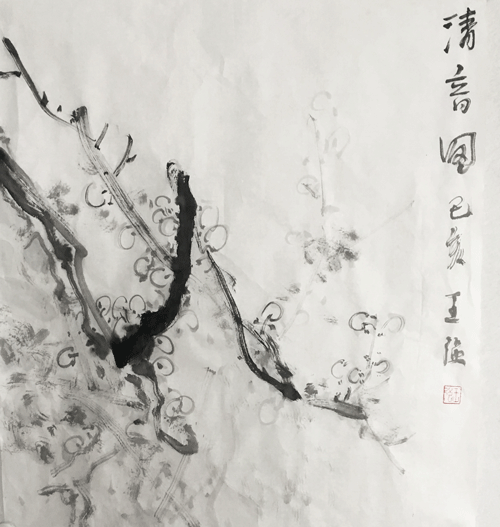 清音图己亥王